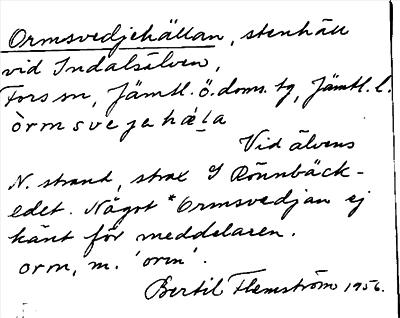 Ormsvedjehällan, stenhäll
vid Indalsälven,
Fors sn, Jämtl. ö. doms. tg, Jämtl. l.
òrmsvejahä́l̠a
Vid älvens
N. strand, strax S Rönnbäck-
edet. Något *Ormsvedjan ej
känt för meddelaren.
orm, m. 'orm'.
Bertil Flemström 1956.